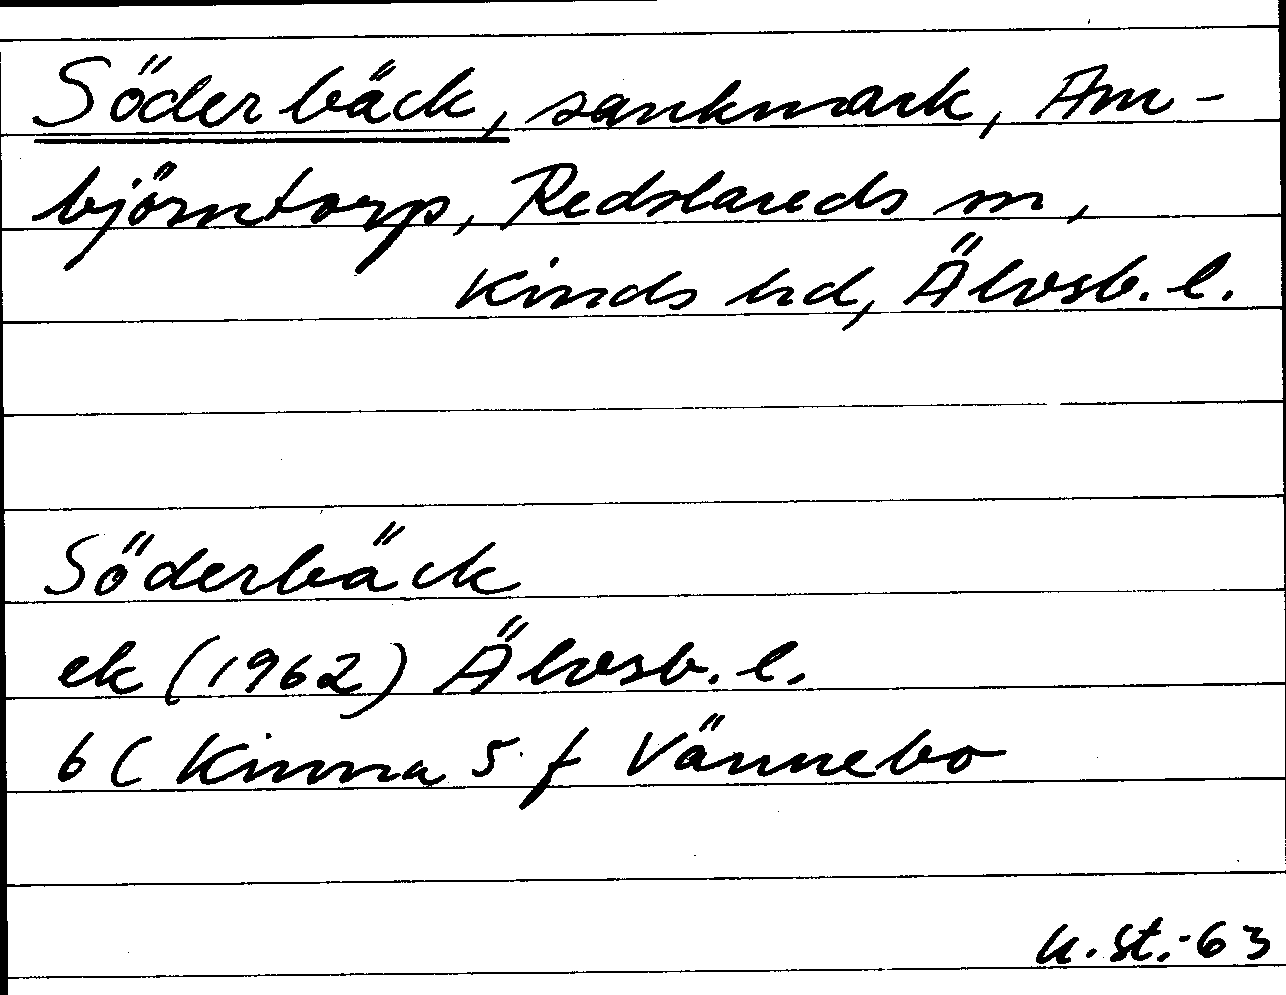 Söderbäck, sankmark, Am-
björntorp, Redslareds sn,
Kinds hd, Älvsb. l.
Söderbäck
ek (1962) Älvsb. l.
6 C Kinna 5 f Vännebo
u.st.-63